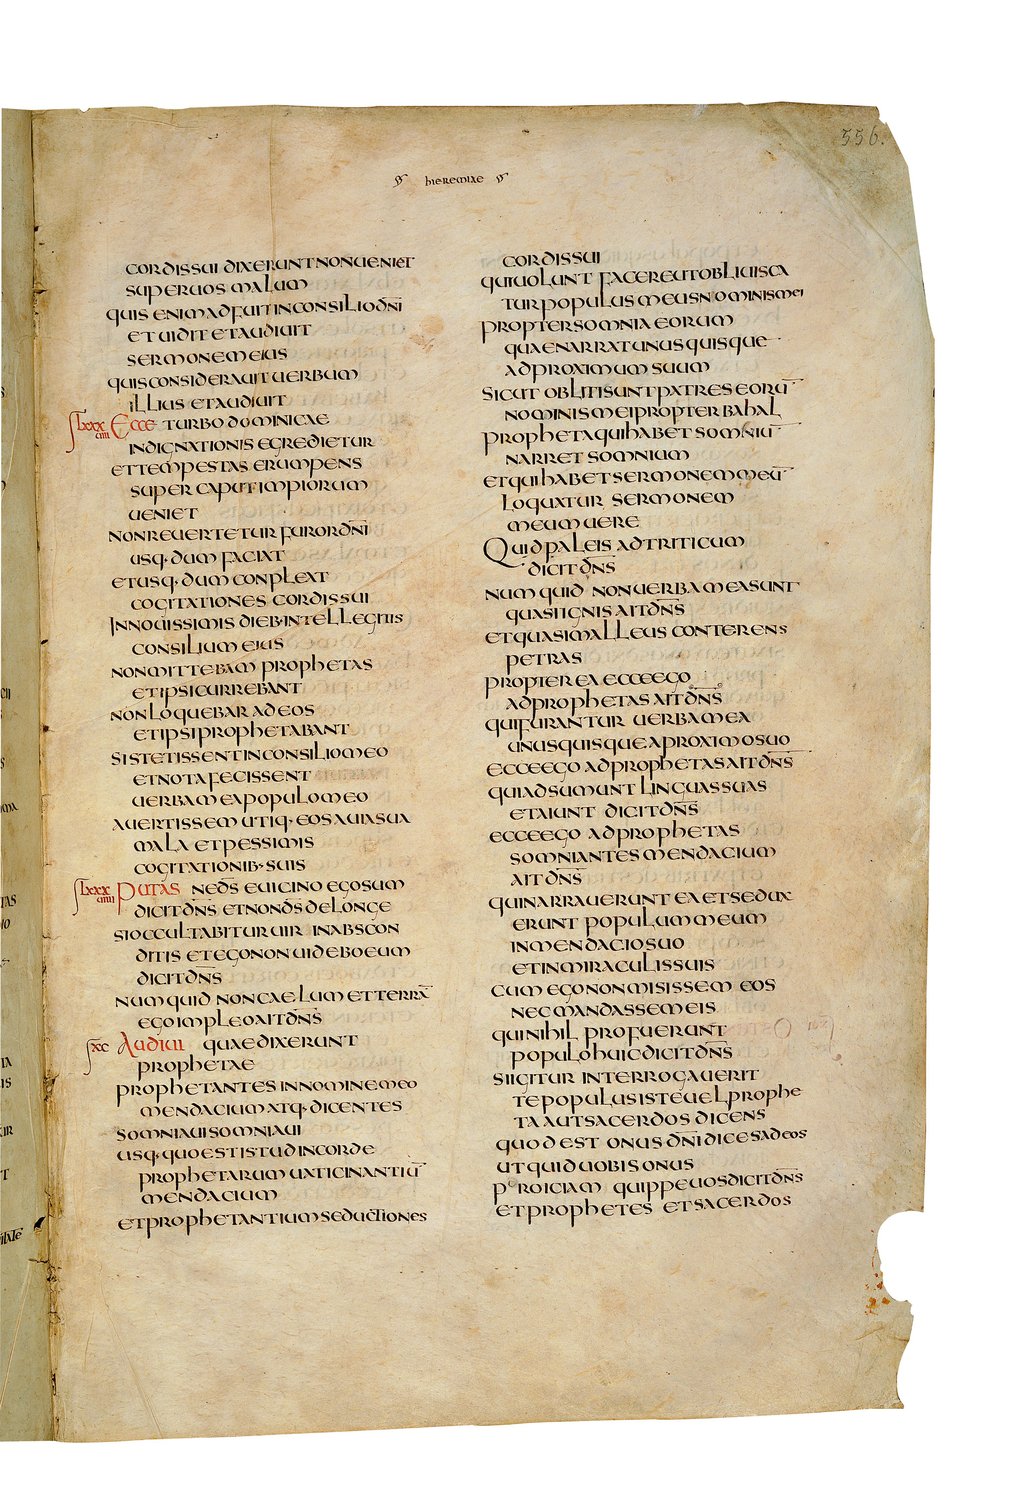 556.
hieremiae
cordis sui dixerunt non veniet
super vos malum
quis enim adfuit in consilio dn̄i
et vidit et audivit
sermonem eius
quis consideravit verbum
illius et audivit
lxxxviii Ecce turbo dominicae
indignationis egredietur
et tempestas erumpens
super caput impiorum
veniet
non revertetur furor dn̄i
usq· dum faciat
et usq· dum conpleat
cogitationes cordis sui
In novissimis dieb· intellegitis
consilium eius
non mittebam prophetas
et ipsi currebant
non loquebar ad eos
et ipsi prophetabant
si stetissent in consilio meo
et nota fecissent
verba mea populo meo
avertissem utiq· eos a via sua
mala et pessimis
cogitationib· suis
lxxxviiii Putas ne d̄s e vicino ego sum
dicit dn̄s et non d̄s de longe
si occultabitur vir in abscon
ditis et ego non videbo eum
dicit dn̄s
numquid non caelum et terrā
ego impleo ait dn̄s
xc Audivi quae dixerunt
prophetae
prophetantes in nomine meo
mendacium atq· dicentes
somniavi somniavi
usq· quo est istud in corde
prophetarum vaticinantiū
mendacium
et prophetantium seductiones
cordis sui
qui volunt facere ut oblivisca
tur populus meus nominis mei
propter somnia eorum
quae narrat unusquisque
ad proximum suum
sicut obliti sunt patres eorū
nominis mei propter bahal
propheta qui habet somniū
narret somnium
et qui habet sermonem meū
loquatur sermonem
meum vere
Quid paleis ad triticum
dicit dn̄s
numquid non verba mea sunt
quasi ignis ait dn̄s
et quasi malleus conterens
petras
propterea ecce ego
ad prophetas ait dn̄s
qui furantur verba mea
unusquisque a proximo suo
ecce ego ad prophetas ait dn̄s
qui adsumunt linguas suas
et aiunt dicit dn̄s
ecce ego ad prophetas
somniantes mendacium
ait dn̄s
qui narraverunt ea et sedux
erunt populum meum
in mendacio suo
et in miraculis suis
cum ego non misissem eos
nec mandassem eis
qui nihil profuerunt
populo huic dicit dn̄s
si igitur interrogaverit
te populus iste vel prophe
ta aut sacerdos dicens
quod est onus dn̄i dices ad eos
ut quid vobis onus
proiciam quippe vos dicit dn̄s
et prophetes et sacerdos